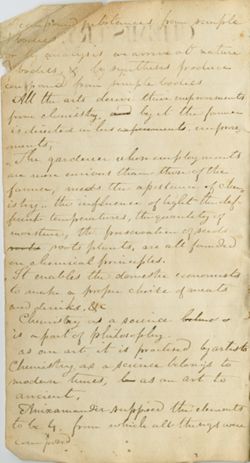 compound substances from simple
bodies.
analysis we arrive at nature
bodies, & by synthesis produce
compound from simple bodies
All the arts derive their improvements
from chemistry, and by it the farmer
is directed in his experiments. improve
ments.
The gardener whose employments
are more curious than those of the
farmer, needs the assistance of chem
istry. the influence of light the dif
ferent temperatures, the quantity of
moisture, the preservation of seeds
roots plants, are all founded
on chemical principles.
It enables the domestic economist
to make a proper choice of meats
and drinks. &c
Chemistry as a science
is a part of philosophy.
as an art it is practised by artists
Chemistry as a science belongs to
modern times, as an art to
ancient.
Anixamander supposed the elements
to be 4. from which all things were
composed